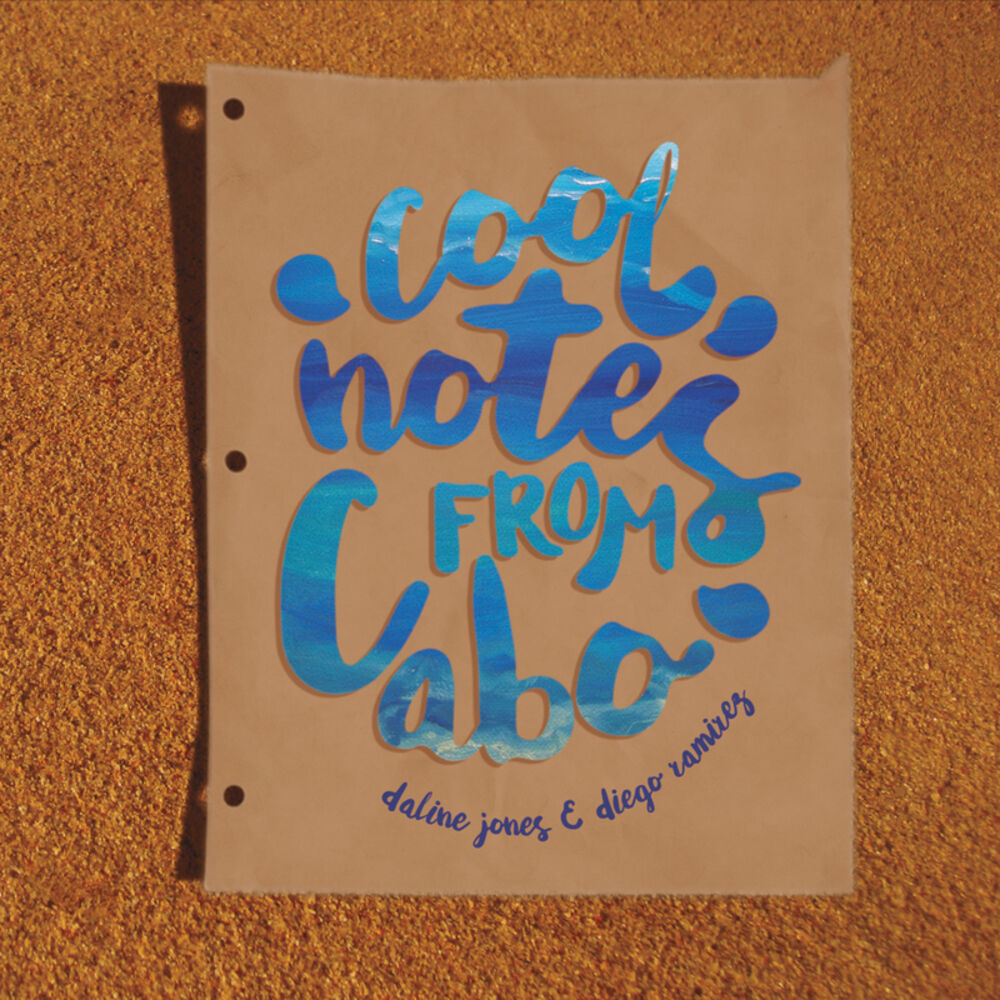 cool
notes
FROM
Cabo
daline jones & diego ramirez